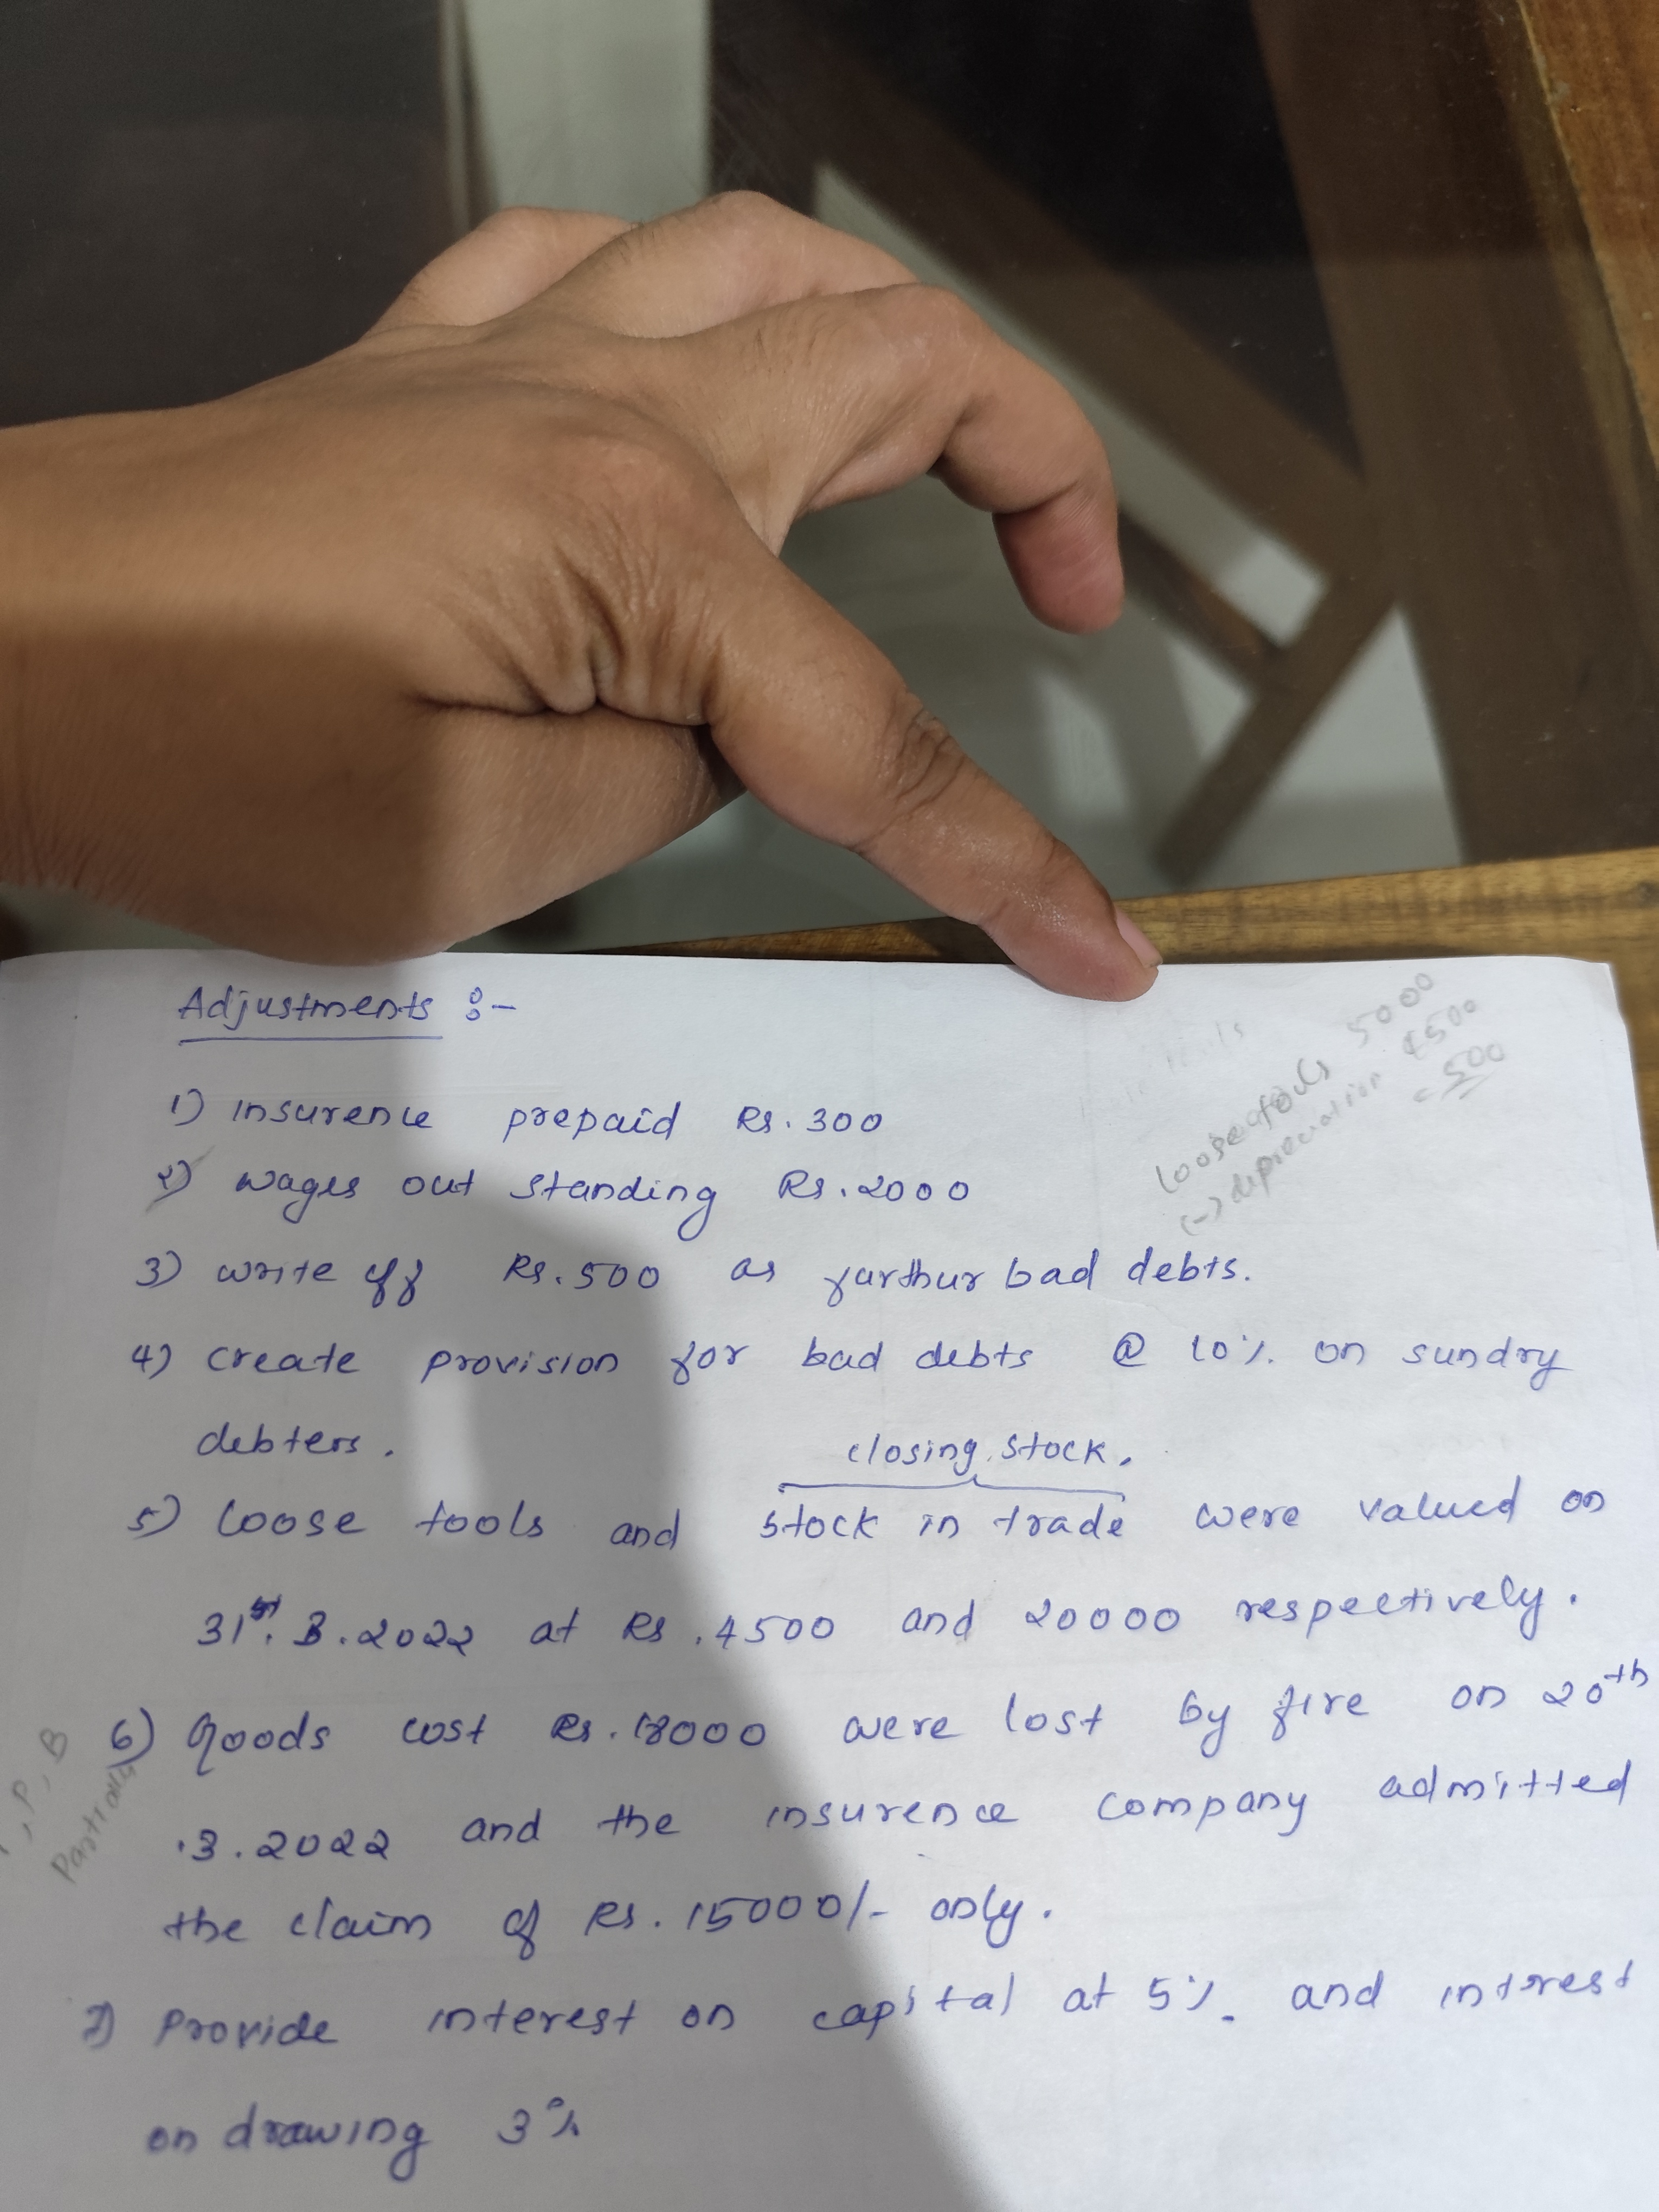 Adjustments :-
loose tools 5000
(-) depreciation 4500
= 500
1) insurence prepaid Rs. 300
2) wages out standing Rs. 2000
3) write off Rs. 500 as furthur bad debts.
4) create provision for bad debts @ 10% on sundry
debters.
closing stock.
5) loose tools and stock in trade were valued on
31st. 3. 2022 at Rs. 4500 and 20000 respectively.
6) goods cost Rs. 18000 were lost by fire on 20th
.3.2022 and the insurence company admitted
the claim of Rs. 15000/- only.
, P, B
Partially
7) provide interest on capital at 5%. and intrest
on drawing 3%